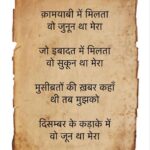 क़ामयाबी में मिलता
वो जुनून था मेरा
जो इबादत में मिलता
वो सुकून था मेरा
मुसीबतों की ख़बर कहाँ
थी तब मुझको
दिसम्बर के कड़ाके में
वो जून था मेरा